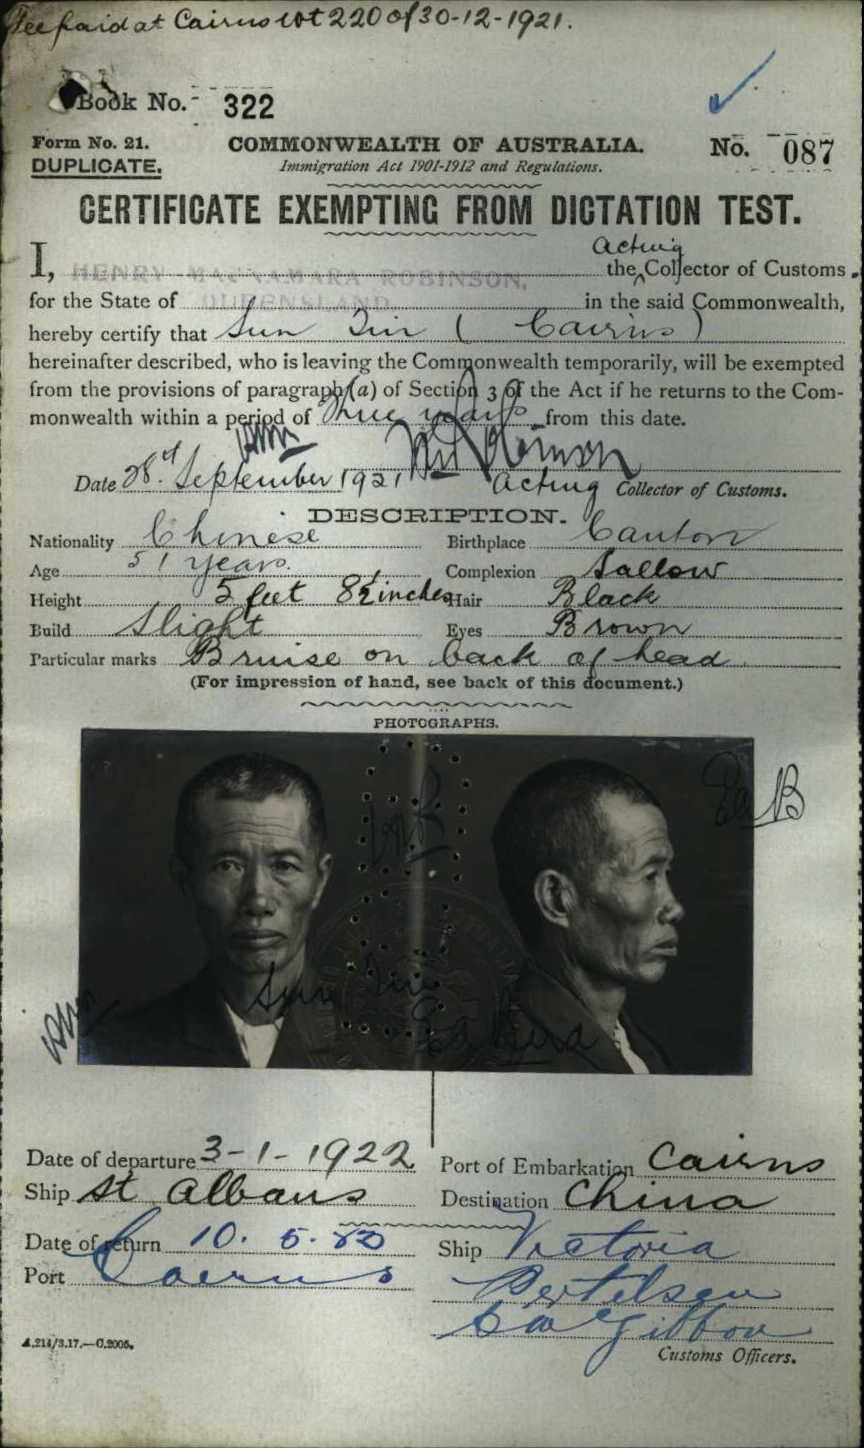 Fee paid at Cairns wt 220 of 30-12-1921.
Book No. - 322
Form No. 21.
DUPLICATE.
COMMONWEALTH OF AUSTRALIA.
Immigration Act 1901-1912 and Regulations.
No. 087
CERTIFICATE EXEMPTING FROM DICTATION TEST.
acting
I, HENRY MACNAMARA ROBINSON, the ^ Collector of Customs
for the State of QUEENSLAND in the said Commonwealth,
hereby certify that Sun (Cairns)
hereinafter described, who is leaving the Commonwealth temporarily, will be exempted
from the provisions of paragraph (a) of Section 3 of the Act if he returns to the Com-
monwealth within a period of years from this date.
Robinson
Date 28th September 1921 acting Collector of Customs.
DESCRIPTION.
Nationality Chinese Birthplace Canton
Age 51 years. Complexion Sallow
Height 5 feet 8½ inches Hair Black
Build Slight Eyes Brown
Particular marks Bruise on back of head
(For impression of hand, see back of this document.)
PHOTOGRAPHS.
Sun
Date of departure 3-1-1922 Port of Embarkation Cairns
Ship St Albans Destination China
Date of return 10. 5. Ship Victoria
Port Cairns Bertelsen
Gibbon
A.214/3.17.—C.2005. Customs Officers.